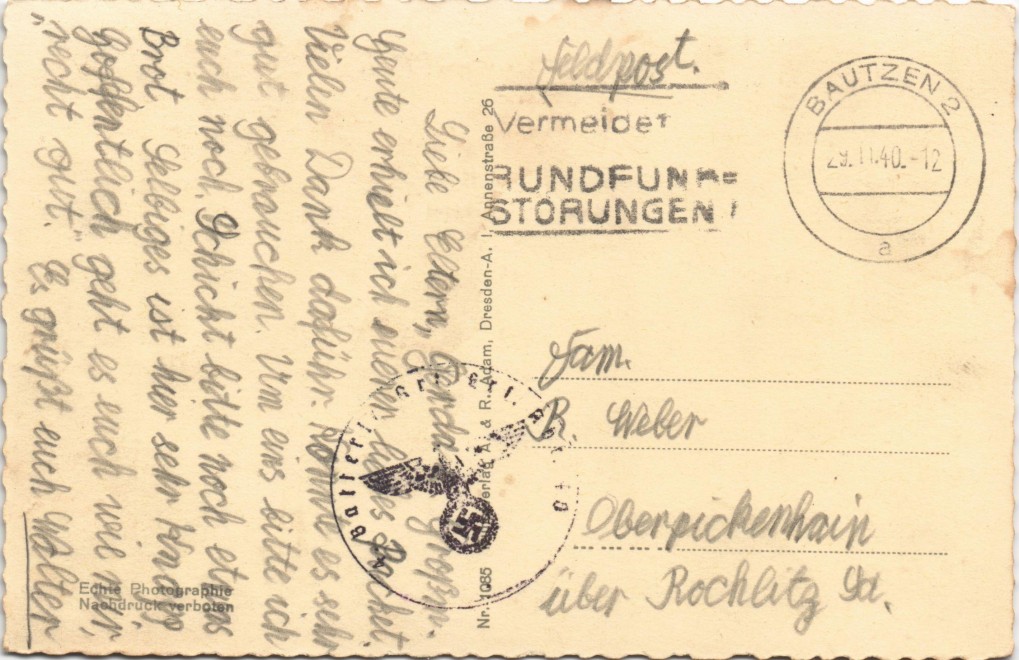 Feldpost.
Vermeidet
RUNDFUNK=
STÖRUNGEN!
BAUTZEN 2
29.11.40.-12
a
Liebe Eltern, Gerda Großm.
Heute erhielt ich euer liebes Packet.
Vielen Dank daführ. Konnte es sehr
gut gebrauchen. Um eins bitte ich
euch noch, Schickt bitte noch etwas
Brot. Selbiges ist hier sehr knapp
Hoffentlich geht es euch wie mir,
"recht gut." Es grüßt euch Walter
Fam.
R. Weber
Oberpickenhain
über Rochlitz Sa.
Verlag A. & R. Adam, Dresden-A. I, Annenstraße 26
Nr. 1085
Echte Photographie
Nachdruck verboten